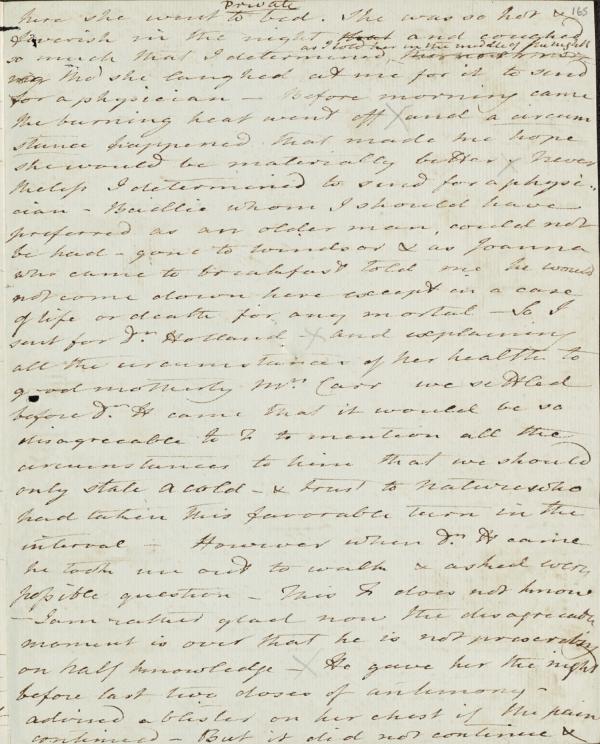 Private
165
here she went to bed. She was so hot &
feverish in the night that and coughed
so much that I determined,
as I told her in the middle of the night
tho' she laughed at me for it to send
for a physician – Before morning came
the burning heat went off X and a circum
stance happened that made me hope
she would be materially better X Never
theless I determined to send for a physi-
cian – Baillie whom I should have
preferred as an older man, could not
be had – gone to Windsor & as Joanna
who came to breakfast told me he would
not come down here except in a case
of life or death for any mortal – So I
sent for Dr. Holland – X and explaining
all the circumstances of her health to
good motherly Mrs Carr we settled
before Dr. H came that it would be so
disagreeable to F to mention all the
circumstances to him that we should
only state a cold – & trust to Nature who
had taken this favorable turn in the
interval – However when Dr. H came
he took me out to walk & asked every
possible question – This F does not know
– I am rather glad now the disagreeable
moment is over that he is not prescribing
on half knowledge – X He gave her the night
before last two doses of antimony –
advised a blister on her chest if the pain
continued – But it did not continue &